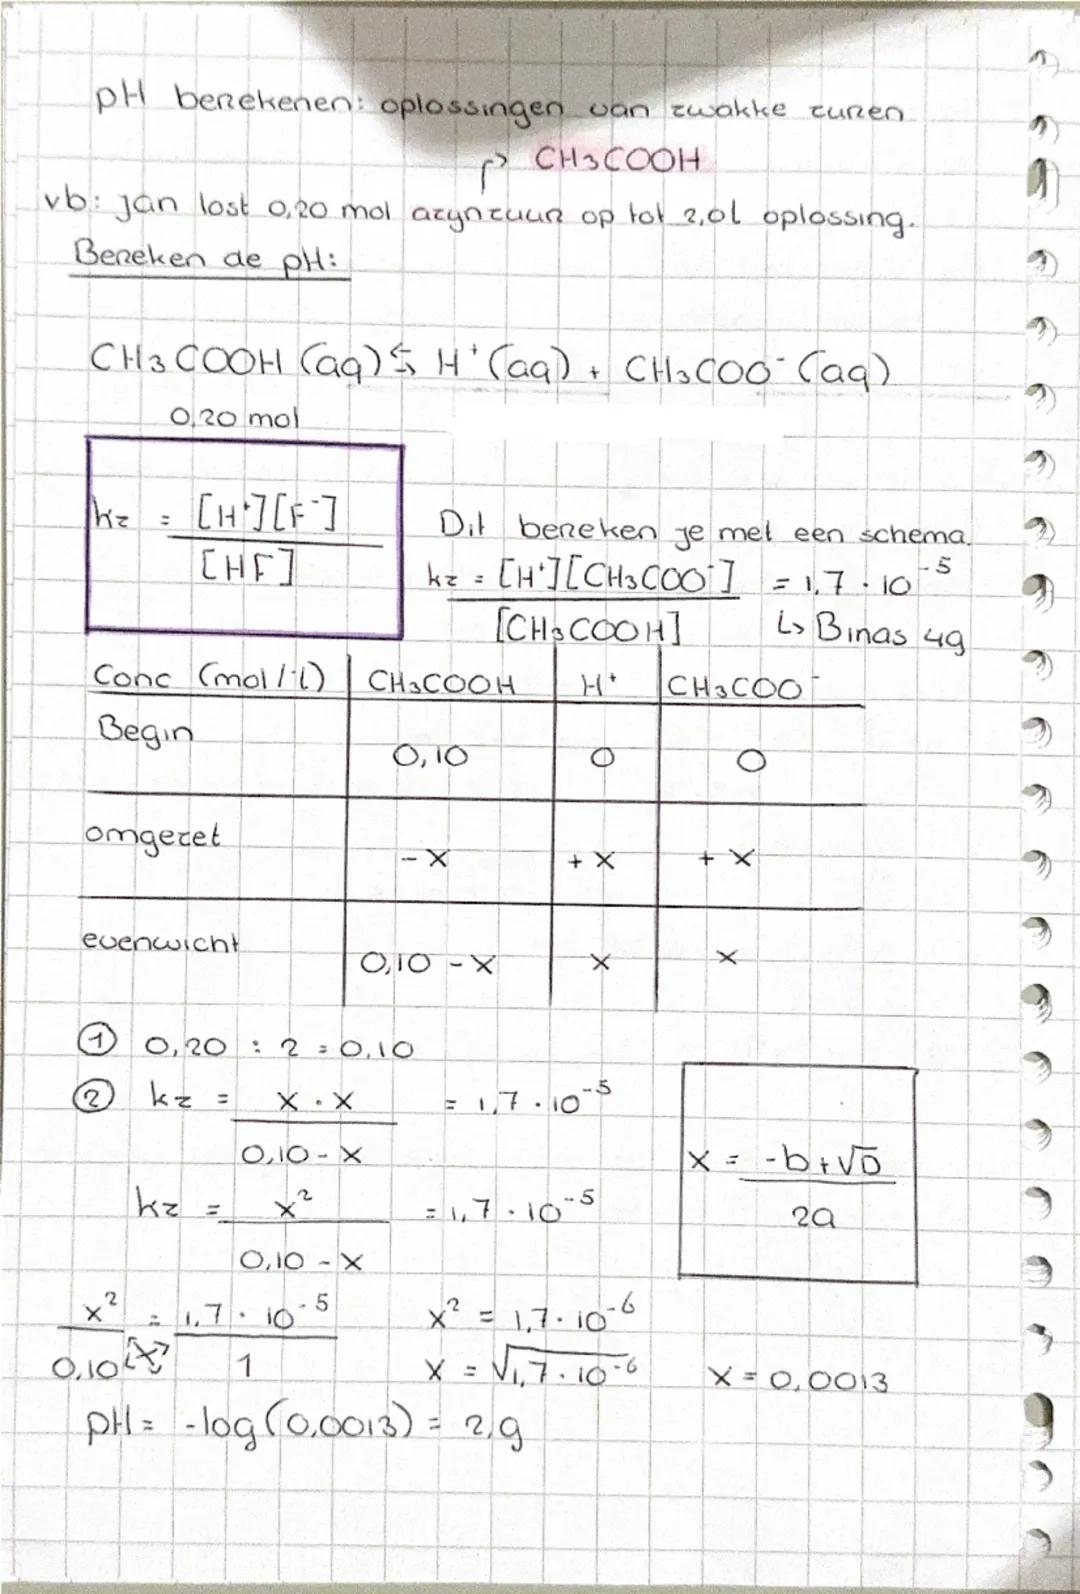 pH berekenen: oplossingen van zwakke zuren
↱ CH3COOH
vb: Jan lost 0,20 mol azijnzuur op tot 2,0L oplossing.
Bereken de pH:
CH3COOH (aq) ⇆ H⁺ (aq) + CH3COO⁻ (aq)
0,20 mol
kz = [H⁺][F⁻]
[HF]
Dit bereken je met een schema.
kz = [H⁺][CH3COO⁻] = 1,7 · 10⁻⁵
[CH3COOH] ↳ Binas 49
Conc (mol/L) CH3COOH H⁺ CH3COO⁻
Begin 0,10 0 0
omgezet - x + x + x
evenwicht 0,10 - x x x
① 0,20 : 2 = 0,10
② kz = x · x = 1,7 · 10⁻⁵
0,10 - x
kz = x² = 1,7 · 10⁻⁵
0,10 - x
x = -b + √D
2a
x² = 1,7 · 10⁻⁵ x² = 1,7 · 10⁻⁶
0,10 [-x] 1 x = √1,7 · 10⁻⁶ x = 0,0013
pH = -log(0,0013) = 2,9